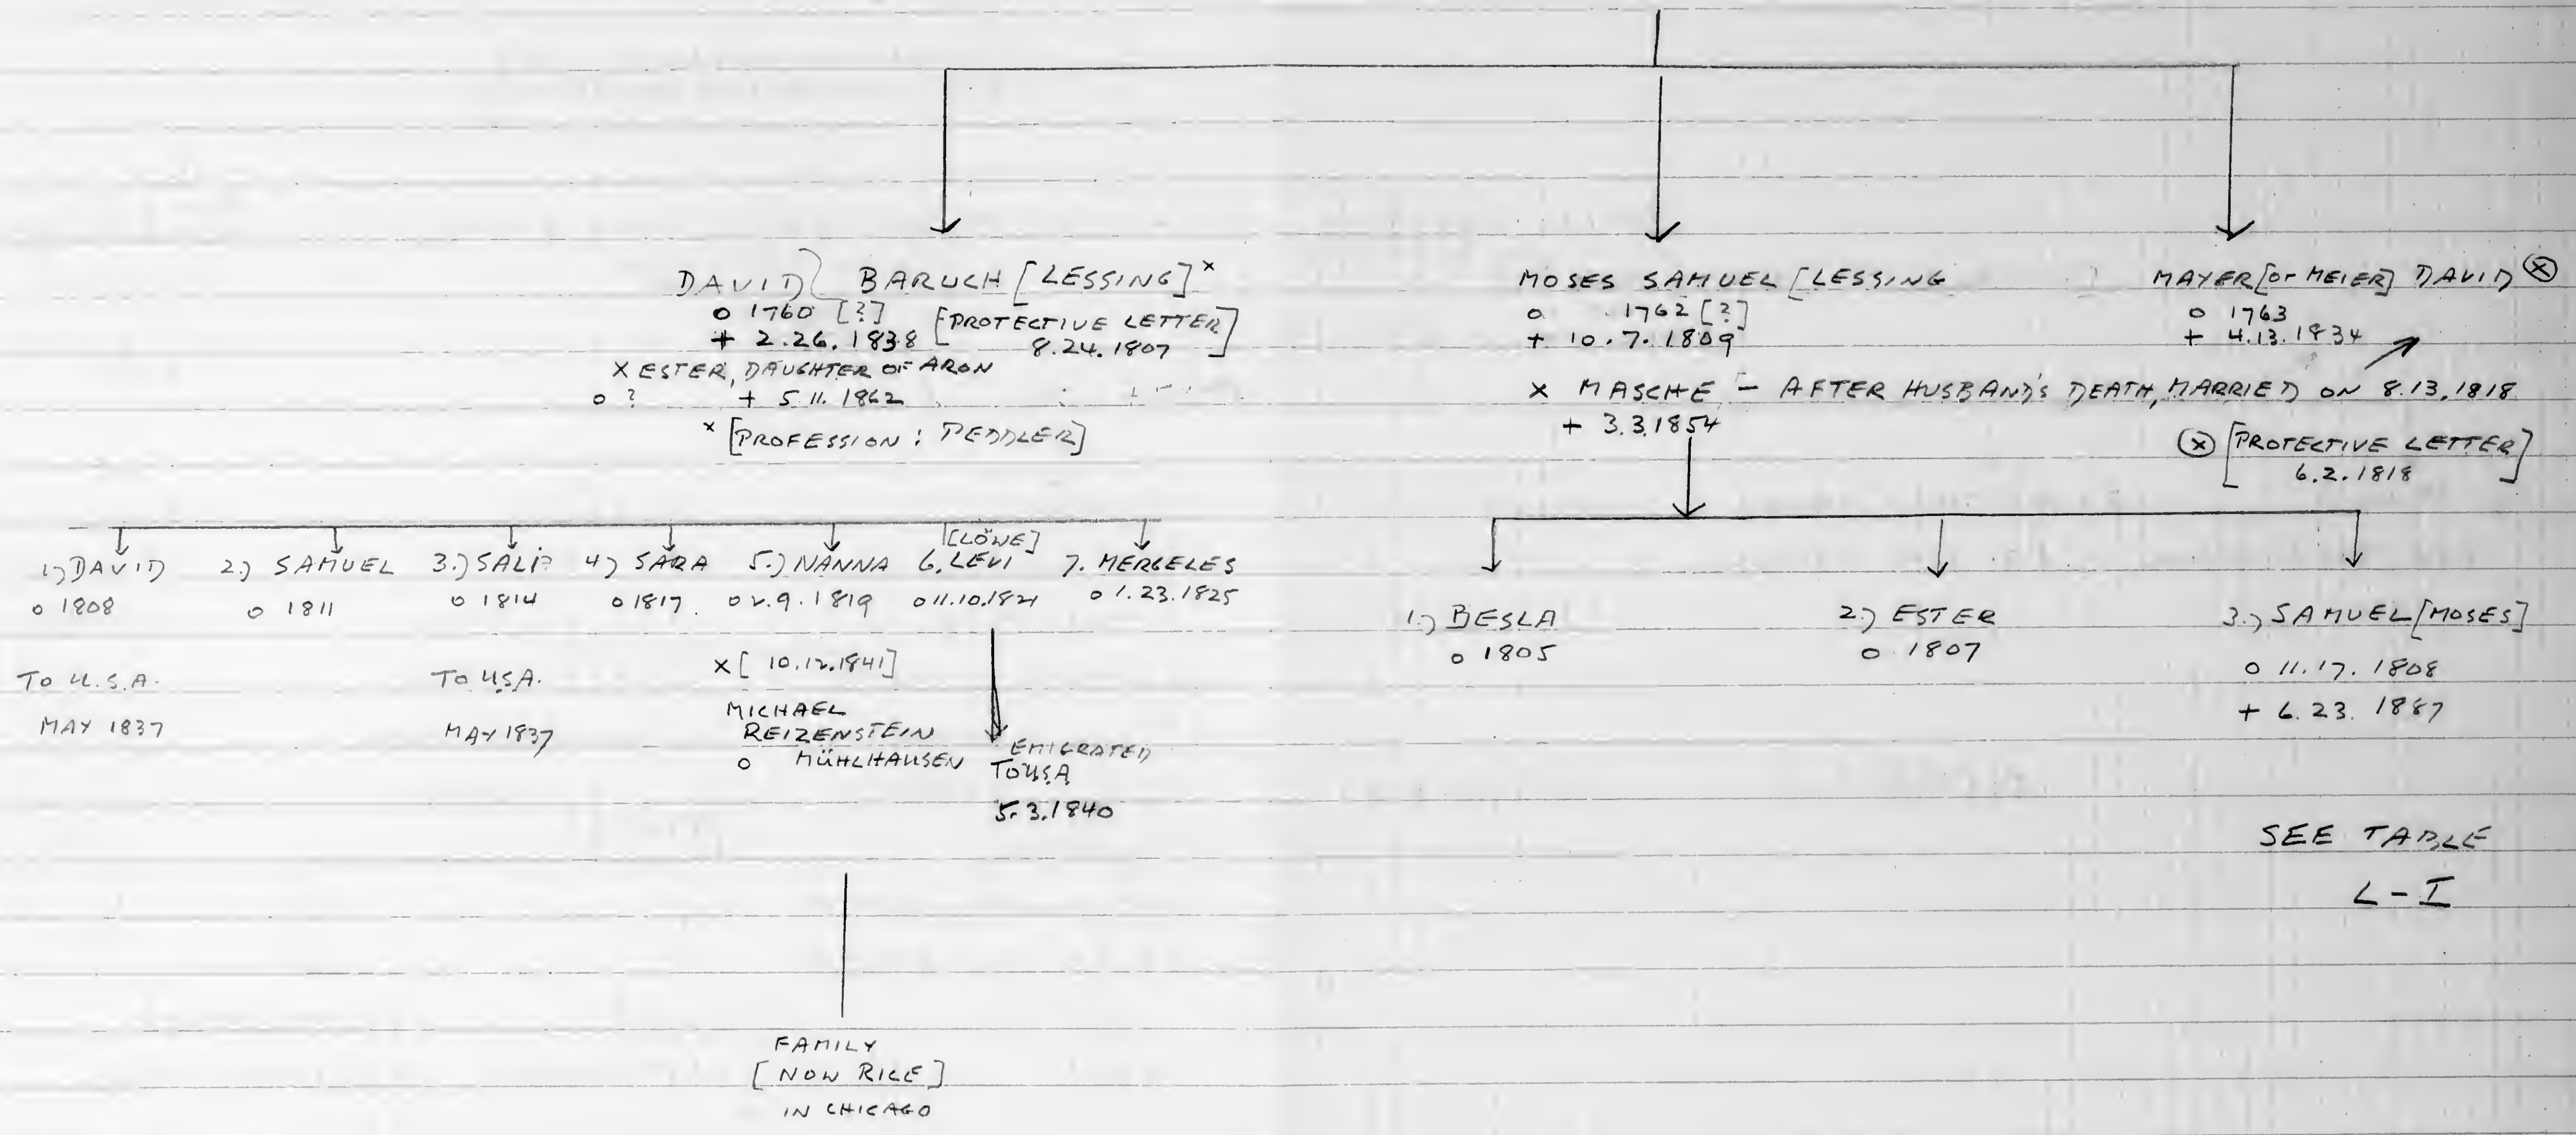 DAVID) BARUCH [LESSING] x
o 1760 [?]
+ 2.26.1838
[PROTECTIVE LETTER]
8.24.1807
X ESTER, DAUGHTER OF ARON
o ? + 5.11.1862
x [PROFESSION: PEDDLER]
MOSES SAMUEL [LESSING
o 1762 [?]
+ 10.7.1809
X MASCHE - AFTER HUSBAND'S DEATH, MARRIED ON 8.13.1818
+ 3.3.1854
MAYER [or MEIER] DAVID ⓧ
o 1763
+ 4.13.1834
ⓧ [PROTECTIVE LETTER]
6.2.1818
1.) DAVID
o 1808
TO U.S.A.
MAY 1837
2.) SAMUEL
o 1811
3.)
o 1814
TO USA.
MAY 1837
4.) SARA
o 1817.
5.) NANNA
o 9.1819
X [10.12.1841]
MICHAEL
REIZENSTEIN
o MÜHLHAUSEN
FAMILY
[NOW RICE]
IN CHICAGO
[LÖWE]
6. LEVI
o 11.10.1821
EMIGRATED
TO USA
5.3.1840
7. MERGELES
o 1.23.1825
1.) BESLA
o 1805
2.) ESTER
o 1807
3.) SAMUEL [MOSES]
o 11.17.1808
+ 6.23.1887
SEE TABLE
L-I